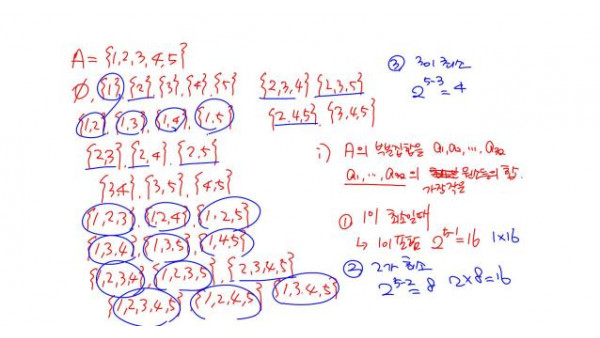 A = {1,2,3,4,5}
∅, {1}, {2}, {3}, {4}, {5}
{1,2}, {1,3}, {1,4}, {1,5}
{2,3}, {2,4}, {2,5}
{3,4}, {3,5}, {4,5}
{1,2,3}, {1,2,4}, {1,2,5}
{1,3,4}, {1,3,5}, {1,4,5}
{1,2,3,4}, {1,2,3,5}, {2,3,4,5}
{1,2,3,4,5}, {1,2,4,5}, {1,3,4,5}
{2,3,4} {2,3,5}
{2,4,5}, {3,4,5}
③ 3이 최소
2^5-3 = 4
i) A의 부분집합을 a1, a2, ..., a32
a1, ..., a32의 원소들의 합.
가장작은
① 1이 최소일때
↳ 1이 포함 2^5-1 = 16 1×16
② 2가 최소
2^5-2 = 8 2×8=16